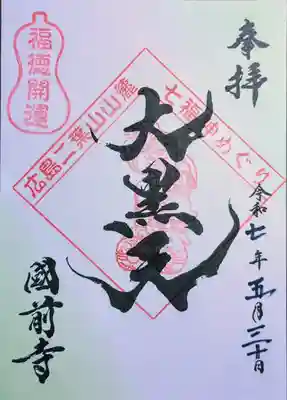 奉拝
令和七年五月三十日
七福神めぐり
大黒天
広島二葉山山麓
福徳開運
國前寺